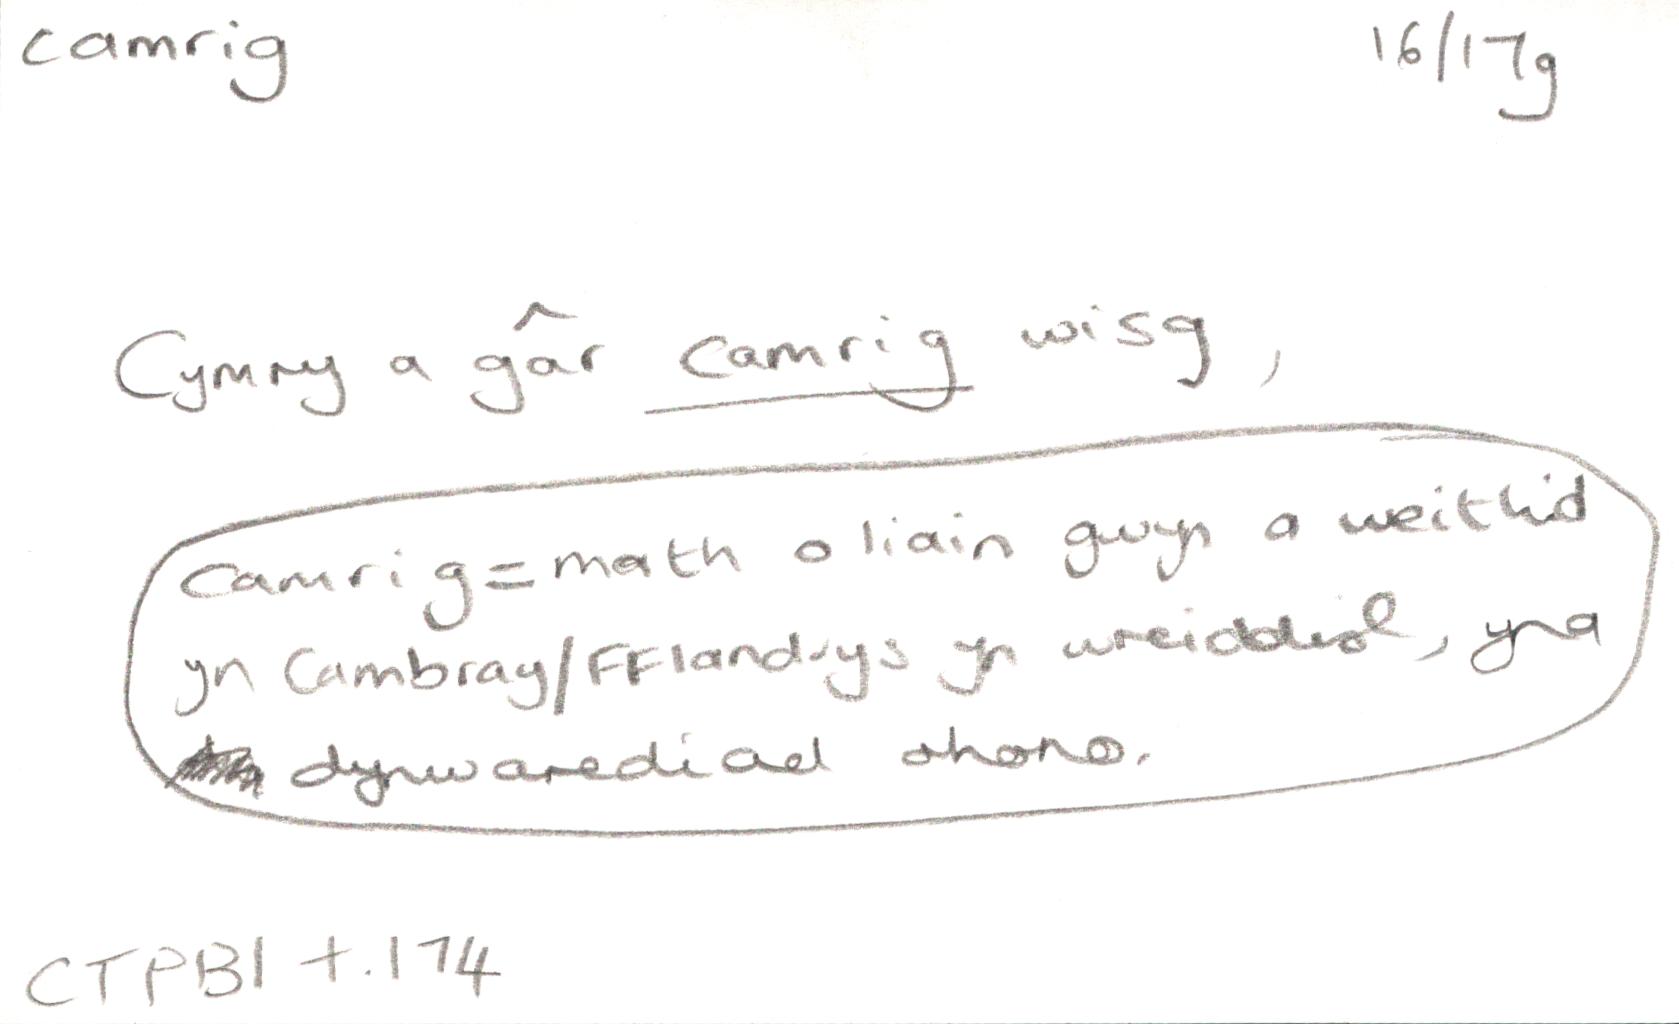 camrig 16/17g
Cymry a gâr camrig wisg,
camrig = math o liain gwyn a weithid
yn Cambray/Fflandrys yn wreiddiol, yna
dynwarediad ohono.
CTPB1 t.174